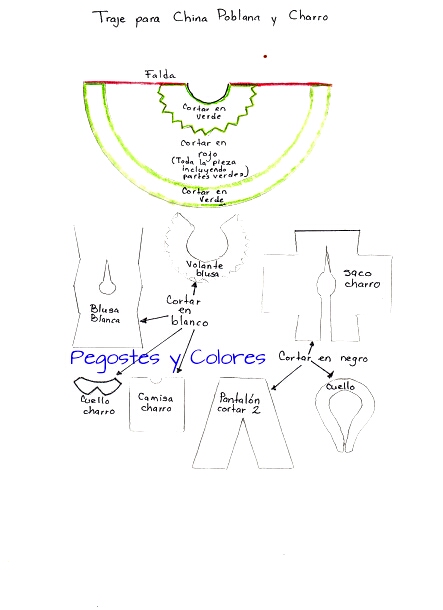 Traje para China Poblana y Charro
Falda
Cortar en
verde
Cortar en
rojo
(Toda la pieza
incluyendo
partes verdes)
Cortar en
Verde
Volante
blusa
Saco
charro
Blusa
Blanca
Cortar
en
blanco
Pegostes y Colores
Cortar en negro
Cuello
charro
Camisa
charro
Pantalón
cortar 2
Cuello